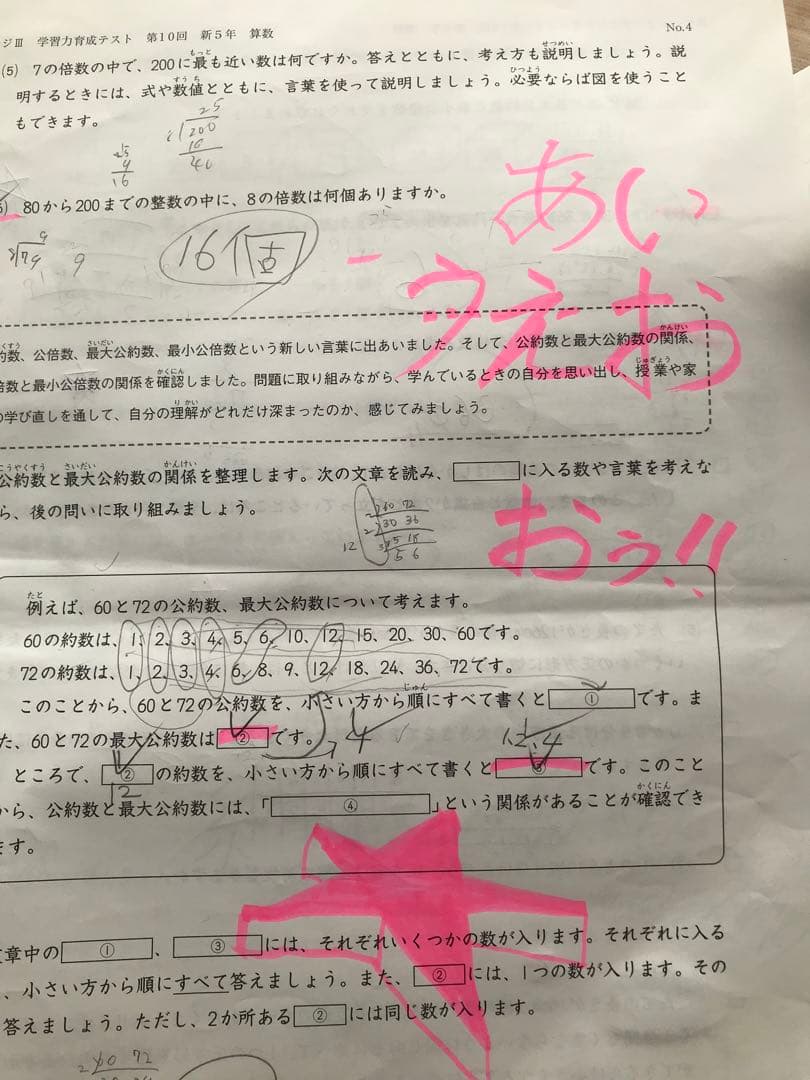 ジⅢ 学習力育成テスト 第10回 新5年 算数 No.4
(5) 7の倍数の中で、200に最も近い数は何ですか。答えとともに、考え方も説明しましょう。説
明するときには、式や数値とともに、言葉を使って説明しましょう。必要ならば図を使うこと
もできます。
25
200
40
16
80から200までの整数の中に、8の倍数は何個ありますか。
9
79 9
16個
あい
うえお
約数、公倍数、最大公約数、最小公倍数という新しい言葉に出あいました。そして、公約数と最大公約数の関係、
倍数と最小公倍数の関係を確認しました。問題に取り組みながら、学んでいるときの自分を思い出し、授業や家
の学び直しを通して、自分の理解がどれだけ深まったのか、感じてみましょう。
公約数と最大公約数の関係を整理します。次の文章を読み、に入る数や言葉を考えな
ら、後の問いに取り組みましょう。
2 60 72
2 30 36
3 15 18
5 6
12
おぅ!!
例えば、60と72の公約数、最大公約数について考えます。
60の約数は、1、2、3、4、5、6、10、12、15、20、30、60です。
72の約数は、1、2、3、4、6、8、9、12、18、24、36、72です。
このことから、60と72の公約数を、小さい方から順にすべて書くと①です。ま
た、60と72の最大公約数は②です。
4
12
4
ところで、②の約数を、小さい方から順にすべて書くと③です。このこと
12
から、公約数と最大公約数には、「④」という関係があることが確認でき
ます。
文章中の①、③には、それぞれいくつかの数が入ります。それぞれに入る
、小さい方から順にすべて答えましょう。また、②には、1つの数が入ります。その
答えましょう。ただし、2か所ある②には同じ数が入ります。
2 60 72